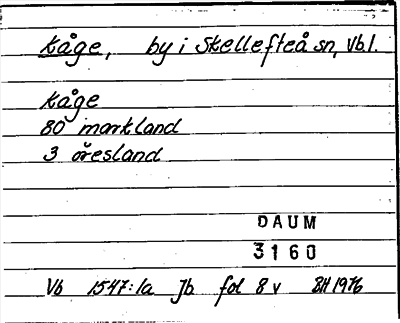 Kåge, by i Skellefteå sn, Vbl.
Kåge
80 markland
3 öresland
DAUM
3160
Vb 1547:1a Jb fol 8 v BH 1976